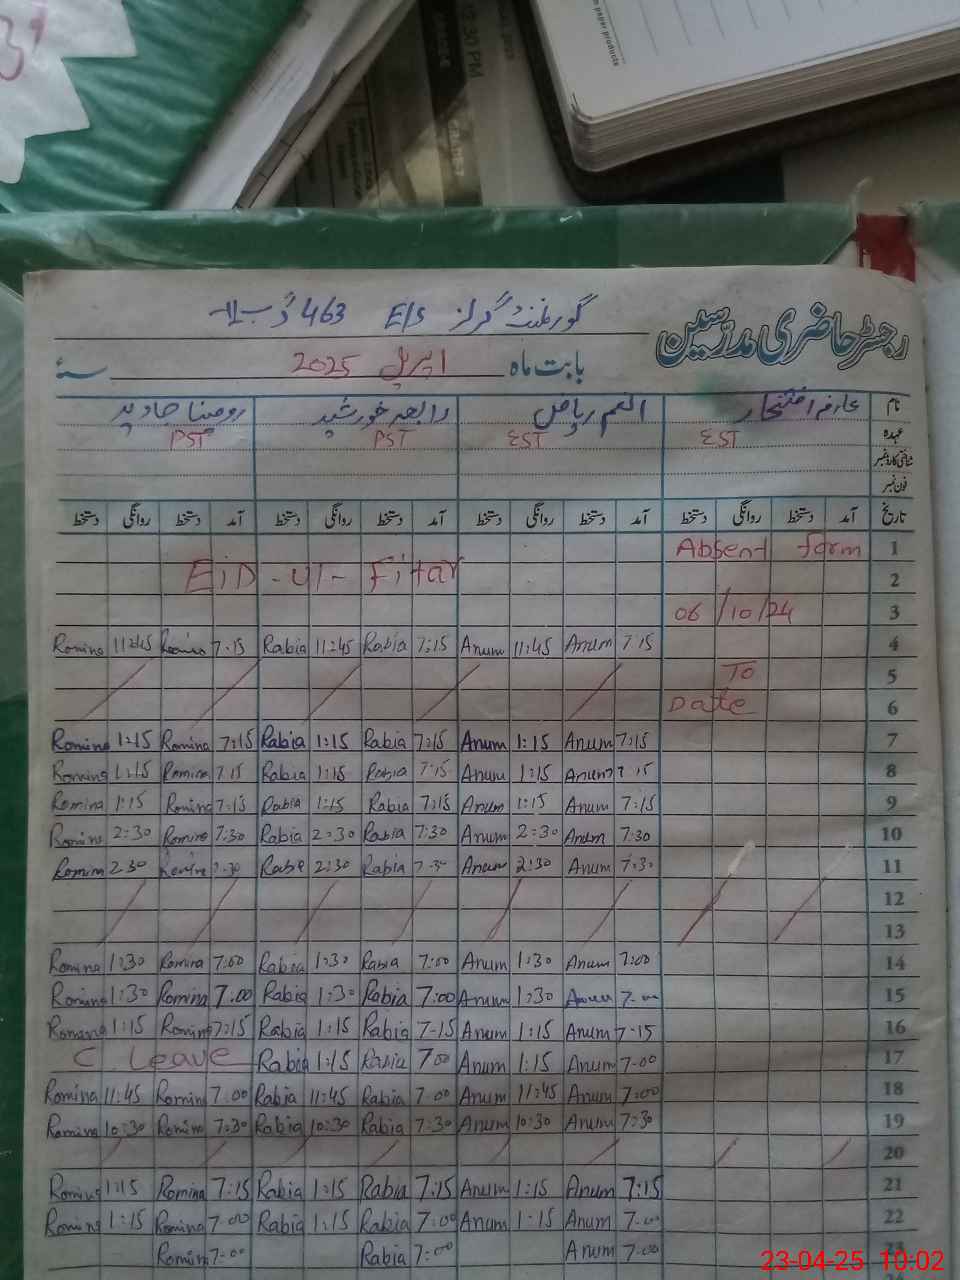 paper products
2:30 PM
رجسٹر حاضری مدرسین گورنمنٹ گرلز E/S 463 گ ب
بابت ماہ اپریل 2025 سنہ
نام عارفہ افتخار انعم ریاض رابعہ خورشید رومینا جاوید
عہدہ EST EST PST PST
شناختی کارڈ نمبر
فون نمبر
تاریخ آمد دستخط روانگی دستخط آمد دستخط روانگی دستخط آمد دستخط روانگی دستخط آمد دستخط روانگی دستخط
Absent form 1
EiD-ul-Fitar 2
06/10/24 3
Romina 11:45 Romina 7:15 Rabia 11:45 Rabia 7:15 Anum 11:45 Anum 7:15 4
To 5
Date 6
Romina 1:15 Romina 7:15 Rabia 1:15 Rabia 7:15 Anum 1:15 Anum 7:15 7
Romina 1:15 Romina 7:15 Rabia 1:15 Rabia 7:15 Anum 1:15 Anum 7:15 8
Romina 1:15 Romina 7:15 Rabia 1:15 Rabia 7:15 Anum 1:15 Anum 7:15 9
Romina 2:30 Romina 7:30 Rabia 2:30 Rabia 7:30 Anum 2:30 Anum 7:30 10
Romina 2:30 Romina 7:30 Rabia 2:30 Rabia 7:30 Anum 2:30 Anum 7:30 11
12
13
Romina 1:30 Romina 7:00 Rabia 1:30 Rabia 7:00 Anum 1:30 Anum 7:00 14
Romina 1:30 Romina 7:00 Rabia 1:30 Rabia 7:00 Anum 1:30 Anum 7-00 15
Romana 1:15 Romina 7:15 Rabia 1:15 Rabia 7-15 Anum 1:15 Anum 7-15 16
C Leave Rabia 1:15 Rabia 700 Anum 1:15 Anum 7-00 17
Romina 11:45 Romina 7:00 Rabia 11:45 Rabia 7:00 Anum 11:45 Anum 7:00 18
Romina 10:30 Romina 7:30 Rabia 10:30 Rabia 7:30 Anum 10:30 Anum 7:30 19
20
Romina 1:15 Romina 7:15 Rabia 1:15 Rabia 7:15 Anum 1:15 Anum 7:15 21
Romina 1:15 Romina 7-00 Rabia 1:15 Rabia 7:00 Anum 1:15 Anum 7-00 22
Romina 7-00 Rabia 7:00 Anum 7-00 23
23-04-25 10:02